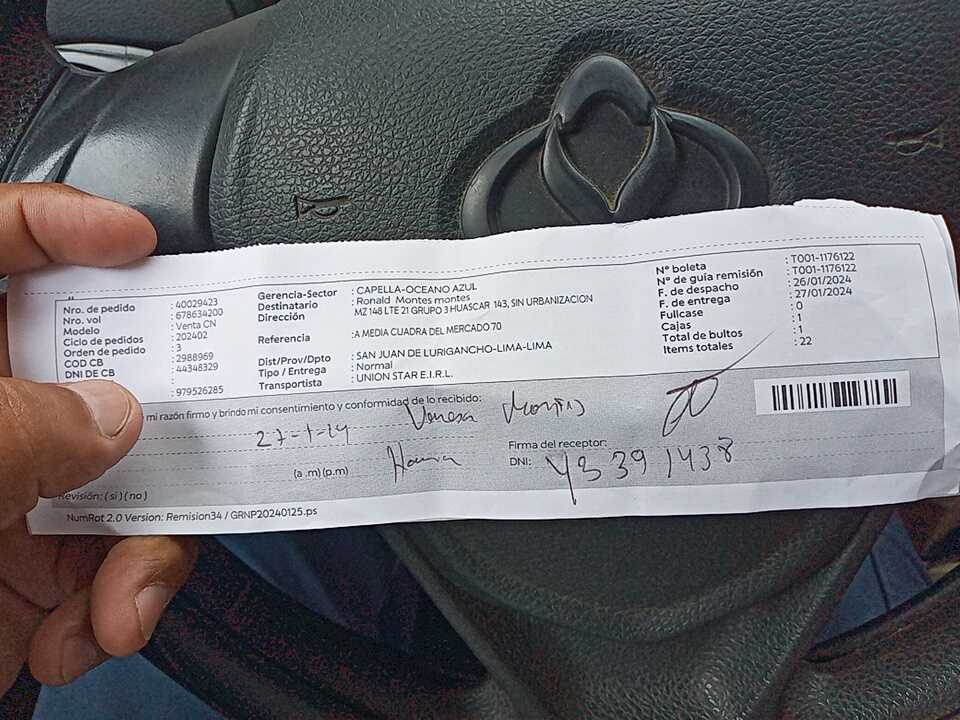 Nro. de pedido : 40029423
Nro. vol : 678634200
Modelo : Venta CN
Ciclo de pedidos : 202402
Orden de pedido : 3
COD CB : 2988969
DNI DE CB : 44348329
:
: 979526285
Gerencia-Sector : CAPELLA-OCEANO AZUL
Destinatario : Ronald Montes montes
Dirección MZ 148 LTE 21 GRUPO 3 HUASCAR 143, SIN URBANIZACION
Referencia :A MEDIA CUADRA DEL MERCADO 70
Dist/Prov/Dpto : SAN JUAN DE LURIGANCHO-LIMA-LIMA
Tipo / Entrega : Normal
Transportista : UNION STAR E.I.R.L.
N° boleta : T001-1176122
N° de guía remisión : T001-1176122
F. de despacho : 26/01/2024
F. de entrega : 27/01/2024
Fullcase : 0
Cajas : 1
Total de bultos : 1
Items totales : 22
mi razón firmo y brindo mi consentimiento y conformidad de lo recibido:
27-1-24
(a .m) (p.m)
Firma del receptor:
DNI: 43391438
Revisión: ( si ) ( no )
NumRot 2.0 Version: Remision34 / GRNP20240125.ps